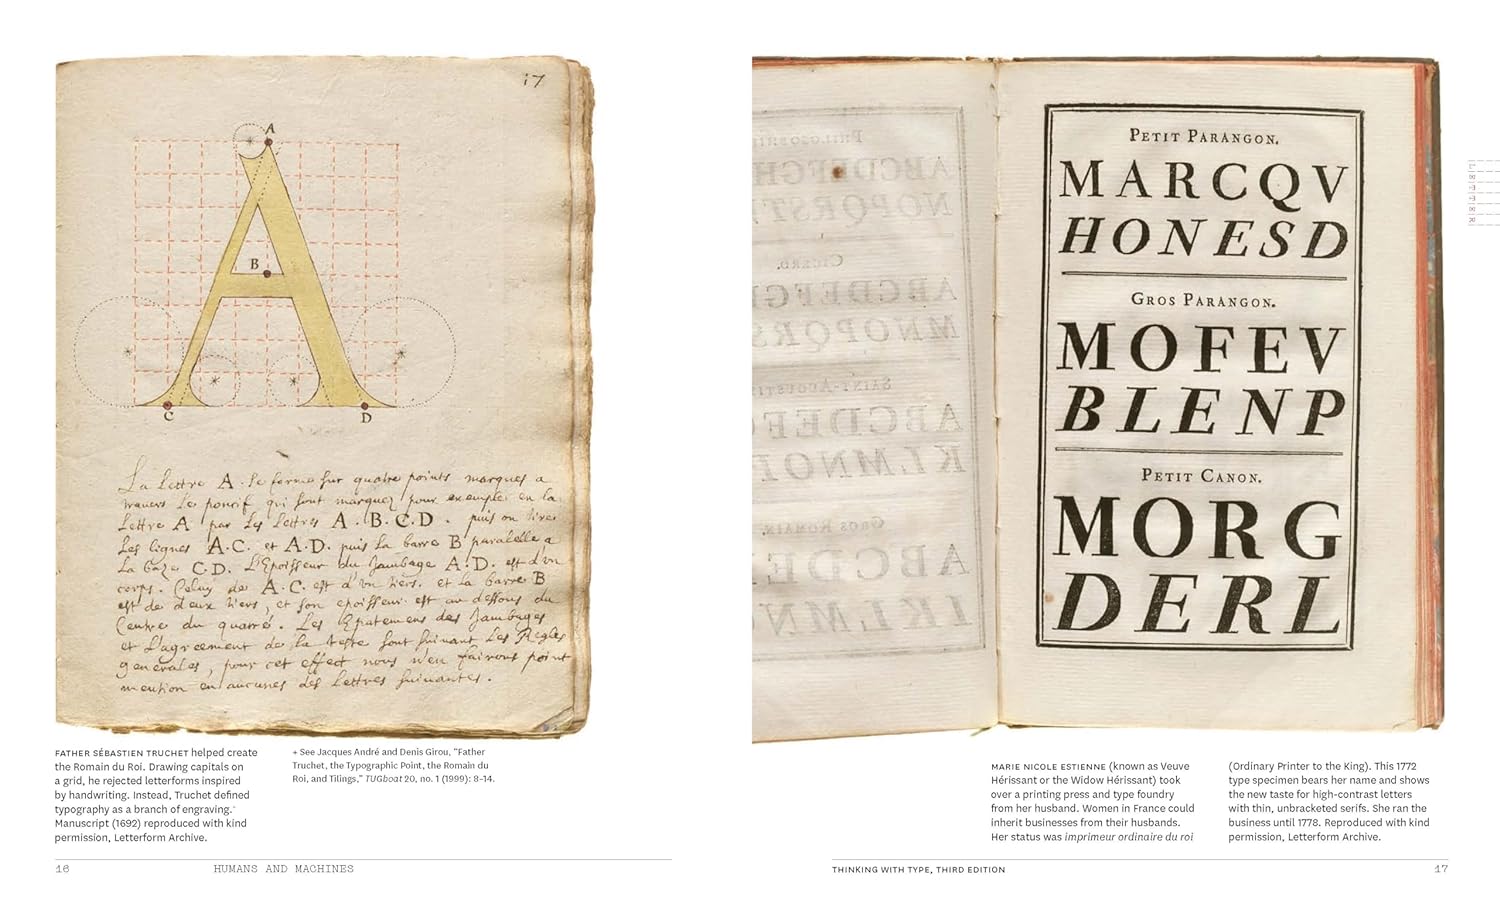 17
A
B
C
D
La lettre A. se forme sur quatre points marques a
travers le poncif qui sont marquez pour exemple en la
lettre A par les lettres A. B. C. D. puis on tirer
les lignes A. C. et A. D. puis la barre B paralelle a
la baze C D. L'Epoisseur du Jambage A. D. est d'un
corps. Celuy de A. C. est d'un tiers. et la barre B
est de deux tiers, et son epoisseur est au dessous du
Centre du quarré. Les Epatemens des Jambages
et L'agreement de la teste sont suivant les Regles
generales, pour cet effect nous n'en fairons point
mention en aucunes des lettres suivantes.
FATHER SÉBASTIEN TRUCHET helped create
the Romain du Roi. Drawing capitals on
a grid, he rejected letterforms inspired
by handwriting. Instead, Truchet defined
typography as a branch of engraving.+
Manuscript (1692) reproduced with kind
permission, Letterform Archive.
+ See Jacques André and Denis Girou, “Father
Truchet, the Typographic Point, the Romain du
Roi, and Tilings,” TUGboat 20, no. 1 (1999): 8–14.
16
HUMANS AND MACHINES
PHILOSOPHIE
ABCDEFGH
NOPQRST
CICERO.
ABCDEFG
MNOPQRS
SAINT-AUGUSTI
ABCDEFG
KLMNOP
GROS ROMAIN.
ABCDE
IKLMN
PETIT PARANGON.
MARCQV
HONESD
GROS PARANGON.
MOFEV
BLENP
PETIT CANON.
MORG
DERL
LETTER
MARIE NICOLE ESTIENNE (known as Veuve
Hérissant or the Widow Hérissant) took
over a printing press and type foundry
from her husband. Women in France could
inherit businesses from their husbands.
Her status was imprimeur ordinaire du roi
(Ordinary Printer to the King). This 1772
type specimen bears her name and shows
the new taste for high-contrast letters
with thin, unbracketed serifs. She ran the
business until 1778. Reproduced with kind
permission, Letterform Archive.
THINKING WITH TYPE, THIRD EDITION
17